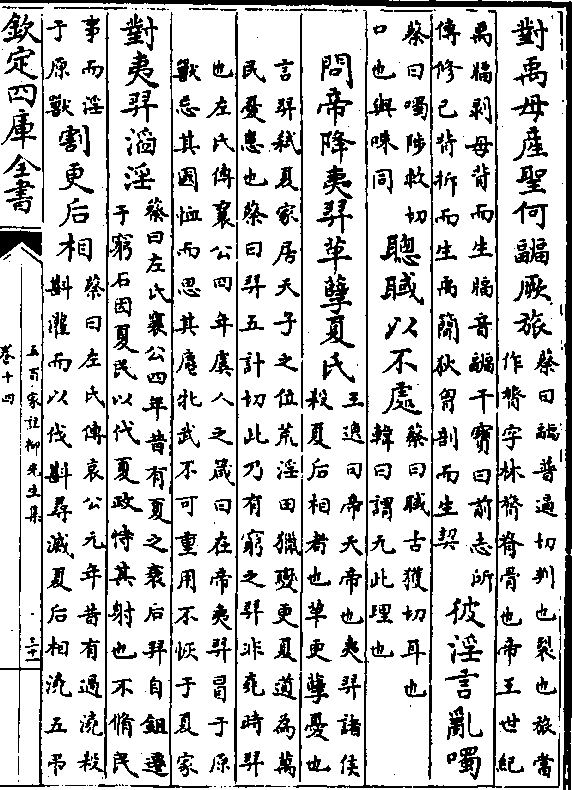 對禹母產聖何疈厥旅
蔡曰疈普逼切判也裂也旅當
作膂字林膂脊骨也帝王世紀
禹疈剥母背而生疈音疈干寶曰前志所
傳修己背拆而生禹簡狄胷剖而生契
彼淫言亂噣
蔡曰噣陟救切
口也與咮同
聰聝以不處
蔡曰聝古獲切耳也
韓曰謂无此理也
問帝降夷羿革孽夏氏
王逸曰帝天帝也夷羿諸侯
殺夏后相者也革更孽憂也
言羿弑夏家居天子之位荒淫田獵變更夏道為萬
民憂患也蔡曰羿五計切此乃有窮之羿非堯時羿
也左氏傳襄公四年虞人之箴曰在帝夷羿冒于原
獸忘其國恤而思其麀牡武不可重用不恢于夏家
對夷羿滔淫
蔡曰左氏襄公四年昔有夏之衰后羿自鉏遷
于窮石因夏民以代夏政恃其射也不脩民
事而淫
于原獸
割更后相
蔡曰左氏傳哀公元年昔有過澆殺
斟灌而以伐斟尋滅夏后相澆五弔
欽定四庫全書
五百家註柳先生集
卷十四